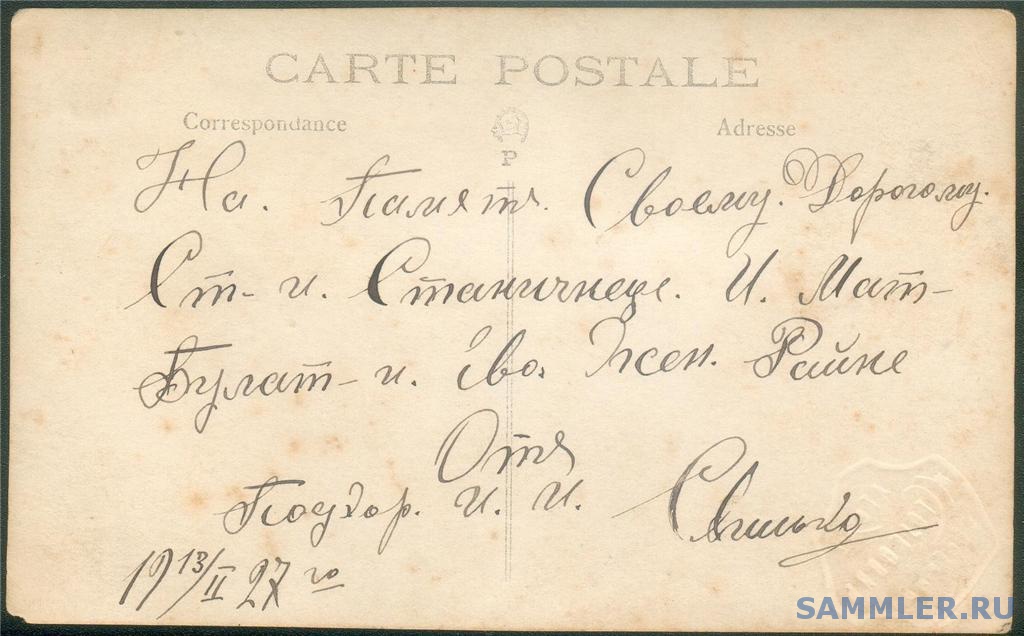 CARTE POSTALE
Correspondance
Adresse
P
На. Памятъ. Своему. Дорогому.
Ст- и. Станичнеце. И. Мат-
Булат- и. Его. Жен. Раине
Отъ
Подхор. И. И.
19 13/II 27 го
SAMMLER.RU